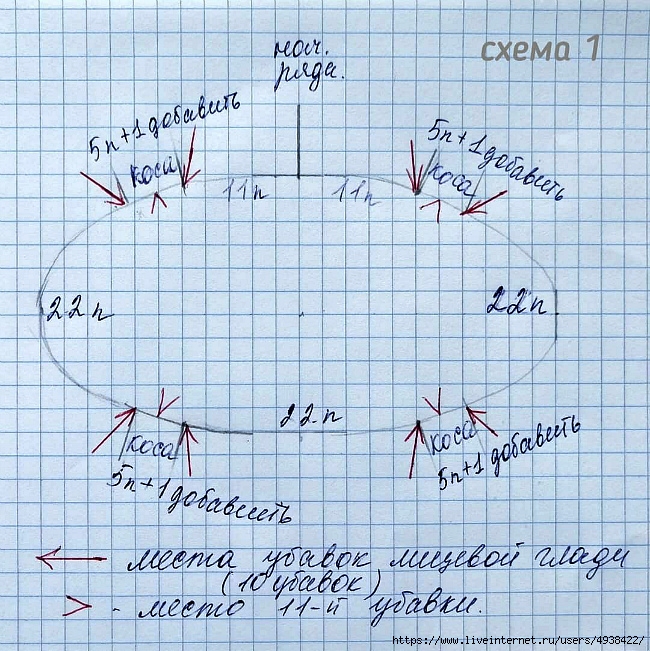 схема 1
нач.
ряда.
5п+1добавить
коса
5п+1добавить
коса
11п
11п
22п
22п
22п
коса
5п+1добавить
коса
5п+1добавить
места убавок лицевой глади
(10 убавок)
- место 11-й убавки.
https://www.liveinternet.ru/users/4938422/